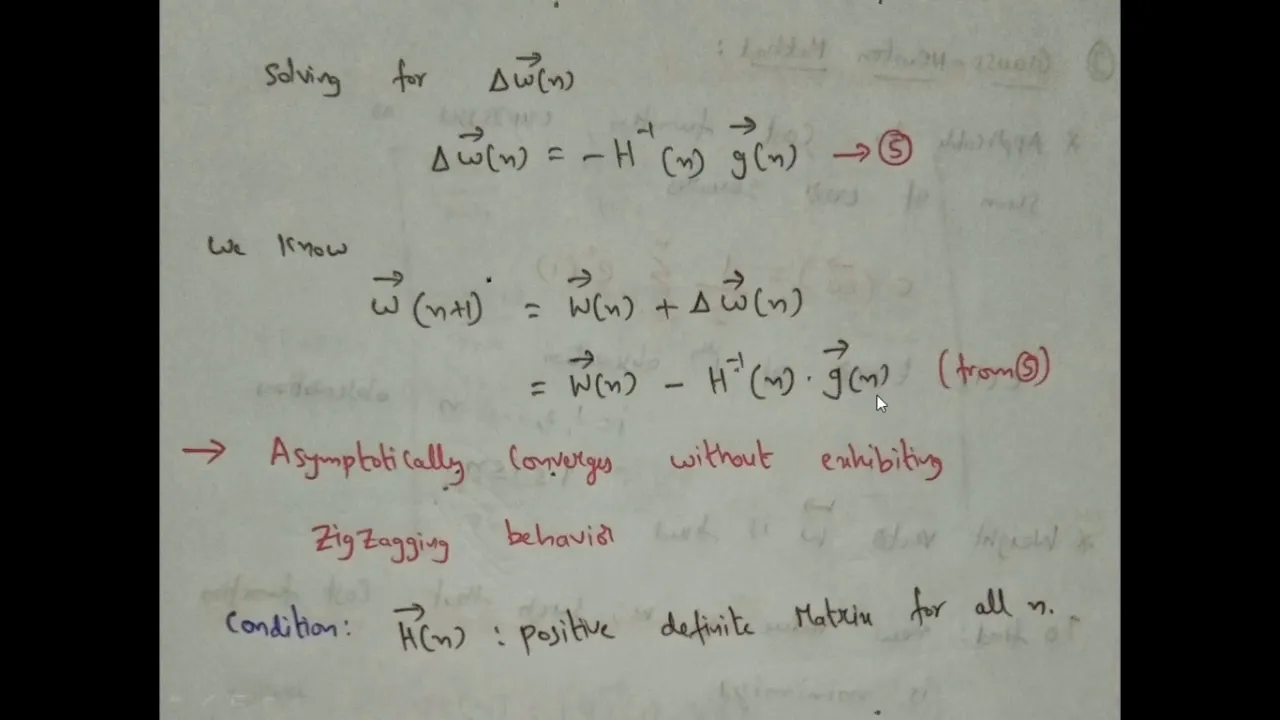 Solving for Δw⃗(n)
Δw⃗(n) = − H⁻¹(n) g⃗(n) → ⑤
We Know
w⃗(n+1) = w⃗(n) + Δw⃗(n)
= w⃗(n) − H⁻¹(n) · g⃗(n) (from ⑤)
→ Asymptotically Converges without exhibiting
ZigZagging behavior
Condition: H⃗(n) : positive definite Matrix for all n.